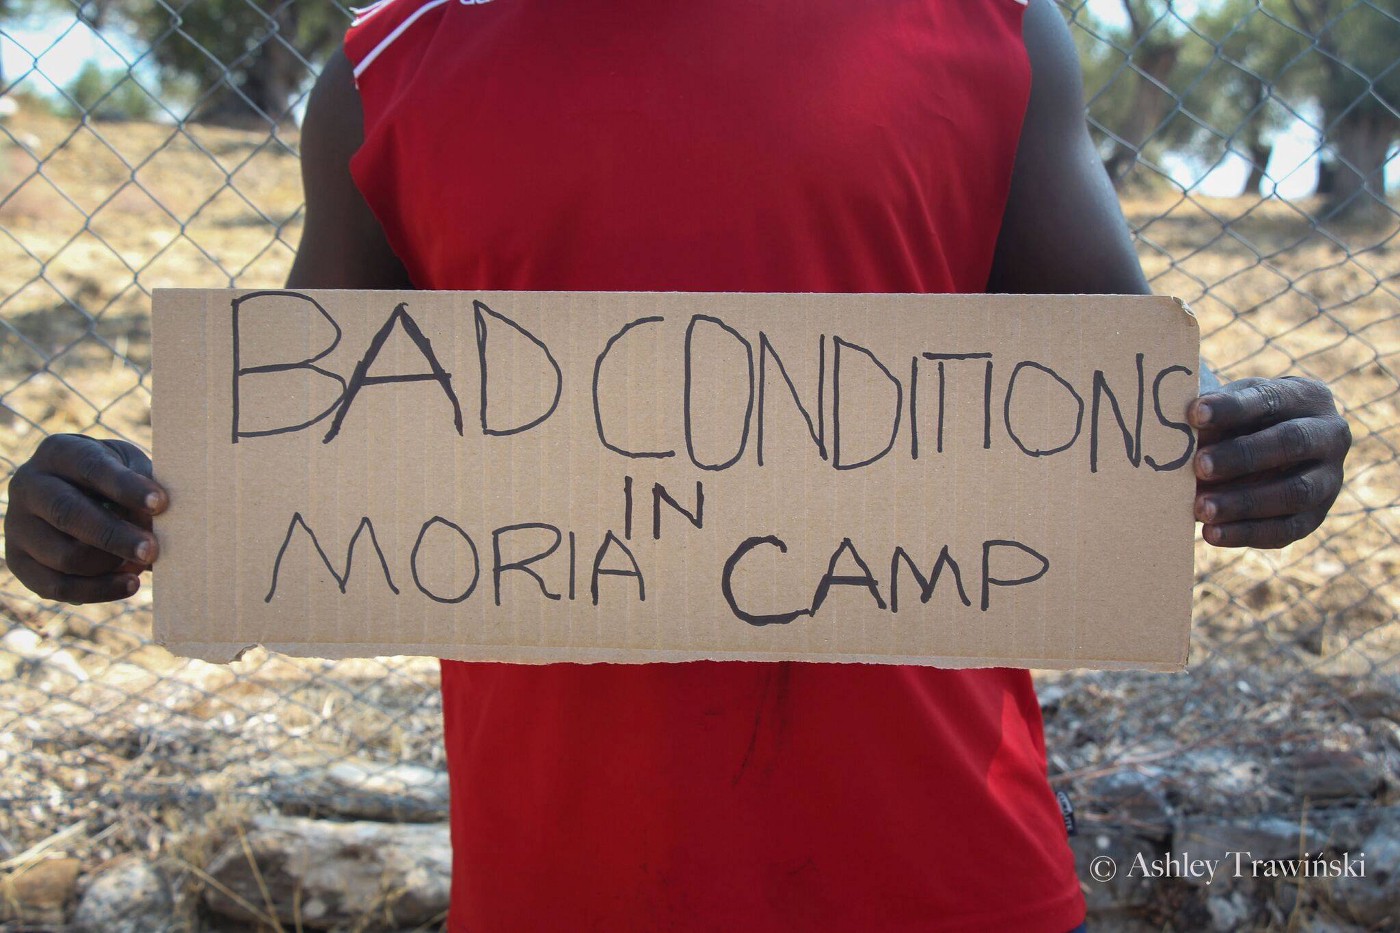 BAD CONDITIONS
IN
MORIA CAMP
© Ashley Trawiński